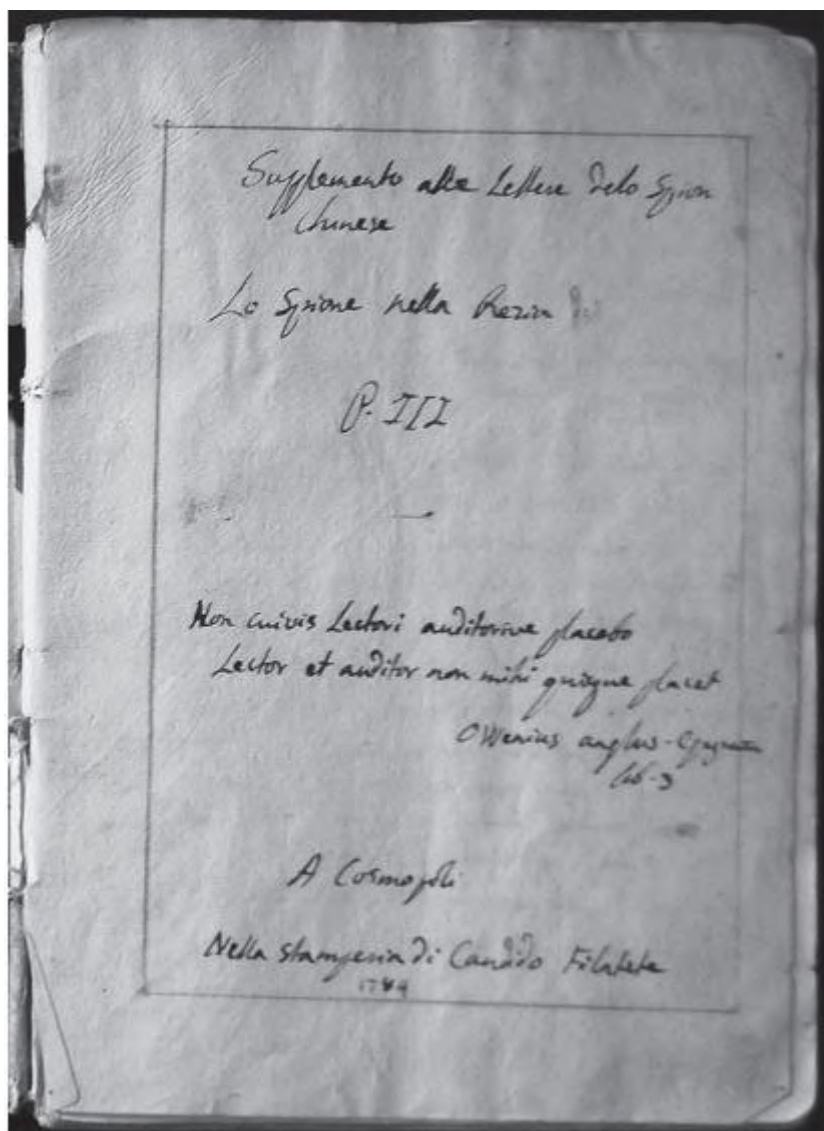 Supplemento alle Lettere delo Spion
Chinese
Lo Spione nella
P. III
Non cuivis Lectori auditorive placebo
Lector et auditor non mihi quisque placet
OWenius anglus
lib. 3
A Cosmopoli
Nella stamperia di Candido Filalete